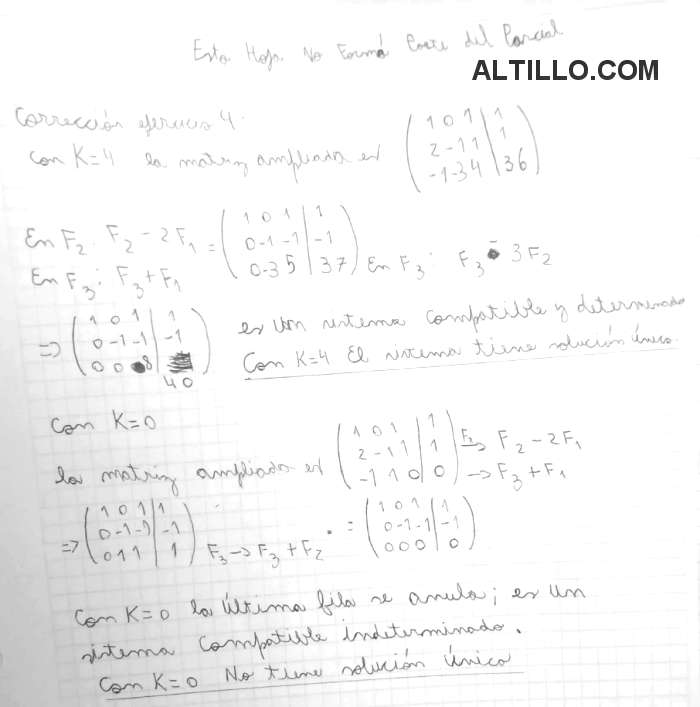 Esta Hoja No Formá Parte del Parcial
ALTILLO.COM
Corrección ejercicio 4.
Con K=4 la matriz ampliada es (1 0 1 | 1
2 -1 1 | 1
-1 -3 4 | 36)
En F2: F2 - 2F1 = (1 0 1 | 1
0 -1 -1 | -1
0 -3 5 | 37) En F3: F3 - 3F2
En F3: F3 + F1
=> (1 0 1 | 1
0 -1 -1 | -1
0 0 8 | 40)
es Un sistema compatible y determinado
Con K=4 El sistema tiene solución única.
Con K=0
la matriz ampliada es (1 0 1 | 1
2 -1 1 | 1
-1 1 0 | 0) F2 -> F2 - 2F1
-> F3 + F1
=> (1 0 1 | 1
0 -1 -1 | -1
0 1 1 | 1) F3 -> F3 + F2 . = (1 0 1 | 1
0 -1 -1 | -1
0 0 0 | 0)
Con K=0 la última fila se anula; es un
sistema Compatible indeterminado.
Con K=0 No tiene solución única